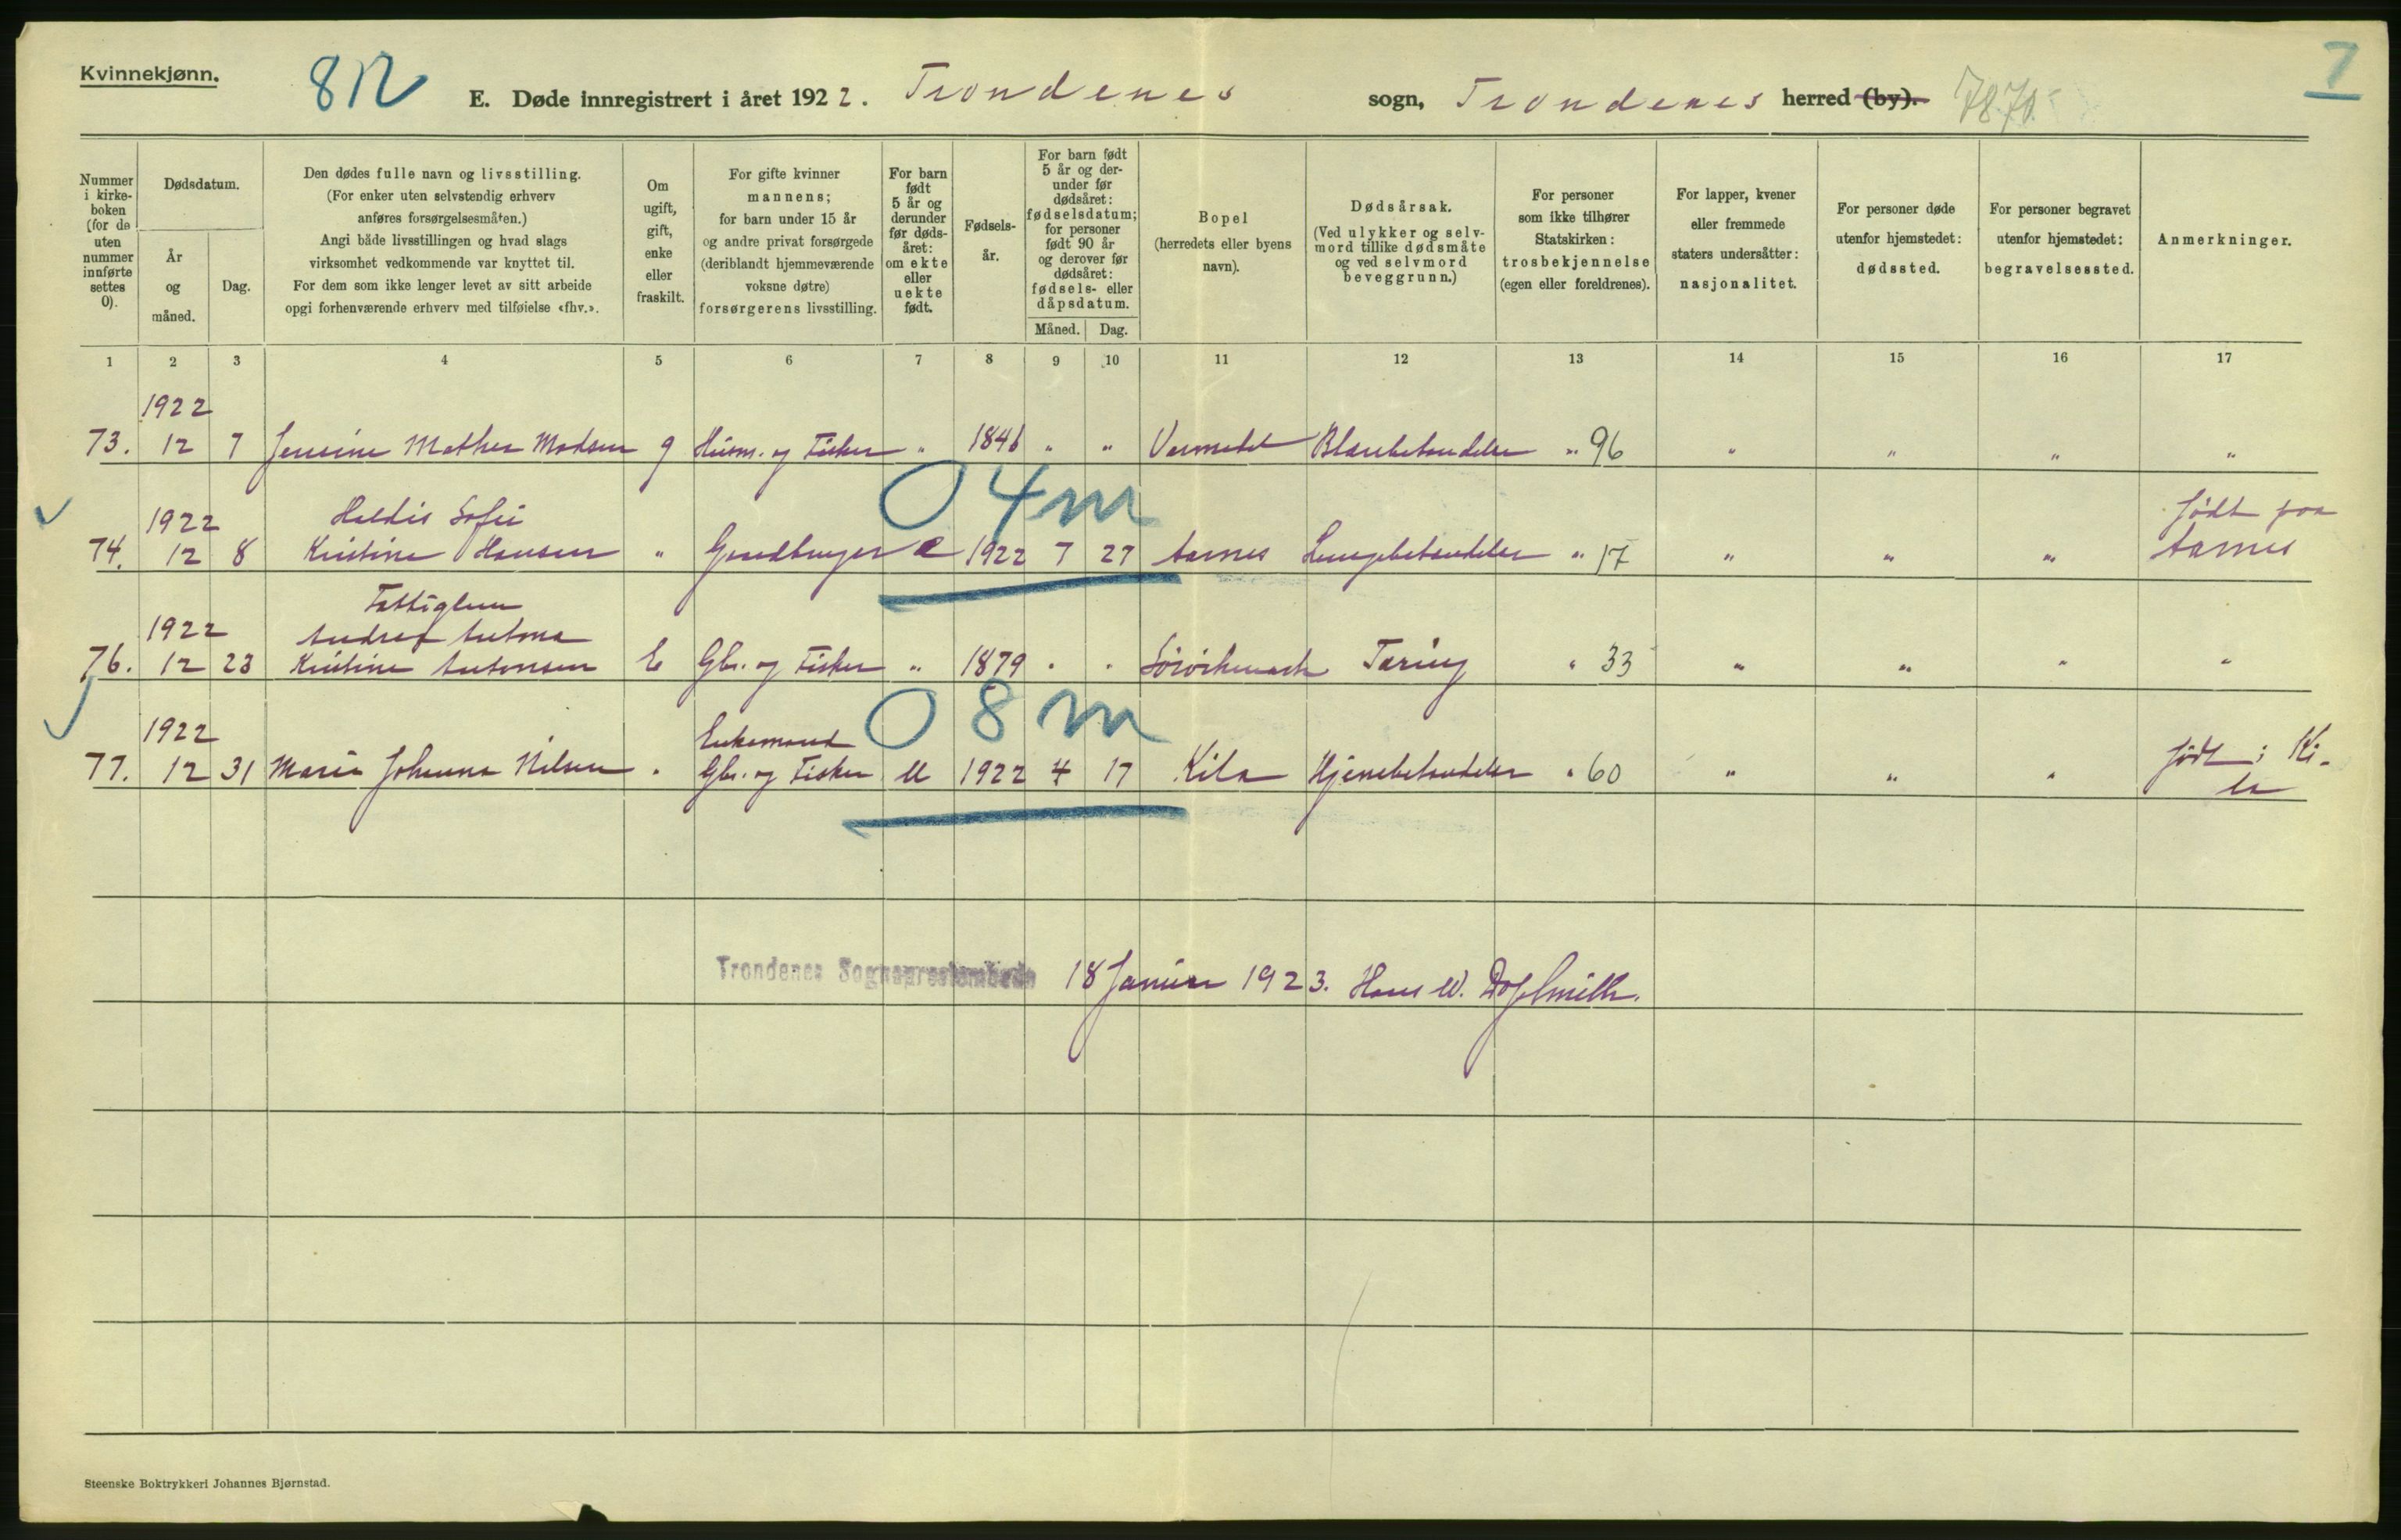 Kvinnekjønn.
812
E. Døde innregistrert i året 1922. Trondenes sogn, Trondenes herred (by).
7870
7
Nummer i kirke- boken (for de uten nummer innførte settes 0).
Dødsdatum.
År og måned.
Dag.
Den dødes fulle navn og livsstilling.
(For enker uten selvstendig erhverv
anføres forsørgelsesmåten.)
Angi både livsstillingen og hvad slags
virksomhet vedkommende var knyttet til.
For dem som ikke lenger levet av sitt arbeide
opgi forhenværende erhverv med tilføielse «fhv.».
Om ugift, gift, enke eller fraskilt.
For gifte kvinner
mannens;
for barn under 15 år
og andre privat forsørgede
(deriblandt hjemmeværende
voksne døtre)
forsørgerens livsstilling.
For barn født 5 år og derunder før døds- året: om ekte eller uekte født.
Fødsels- år.
For barn født
5 år og der-
under før
dødsåret:
fødselsdatum;
for personer
født 90 år
og derover før
dødsåret:
fødsels- eller
dåpsdatum.
Måned. Dag.
Bopel
(herredets eller byens
navn).
Dødsårsak.
(Ved ulykker og selv-
mord tillike dødsmåte
og ved selvmord
beveggrunn.)
For personer
som ikke tilhører
Statskirken:
trosbekjennelse
(egen eller foreldrenes).
For lapper, kvener
eller fremmede
staters undersåtter:
nasjonalitet.
For personer døde
utenfor hjemstedet:
dødssted.
For personer begravet
utenfor hjemstedet:
begravelsessted.
Anmerkninger.
1 2 3 4 5 6 7 8 9 10 11 12 13 14 15 16 17
1922
73. 12 7 Jensine Mathea Madsen g Husm. og Fisker " 1846 " " Vermedet Blærebetændelse " 96 " " " "
04m
1922 Haldis Sofie født paa
74. 12 8 Kristine Hansen " Grundbruger e 1922 7 27 Aarnes Lungebetændelse " 17 " " " Aarnes
Fattiglem
1922 Andrea Antona
76. 12 23 Kristine Antonsen E Gbr. og Fisker " 1879 " " Sørvikmark Tæring " 33 " " " "
08m
1922 Enkemand
77. 12 31 Marie Johanna Nilsen " Gbr. og Fisker U 1922 4 17 Kila Hjernebetændelse " 60 " " " født i Ki-
la
Trondenes Sogneprestembede 18 Januar 1923. Hans W.
Steenske Boktrykkeri Johannes Bjørnstad.